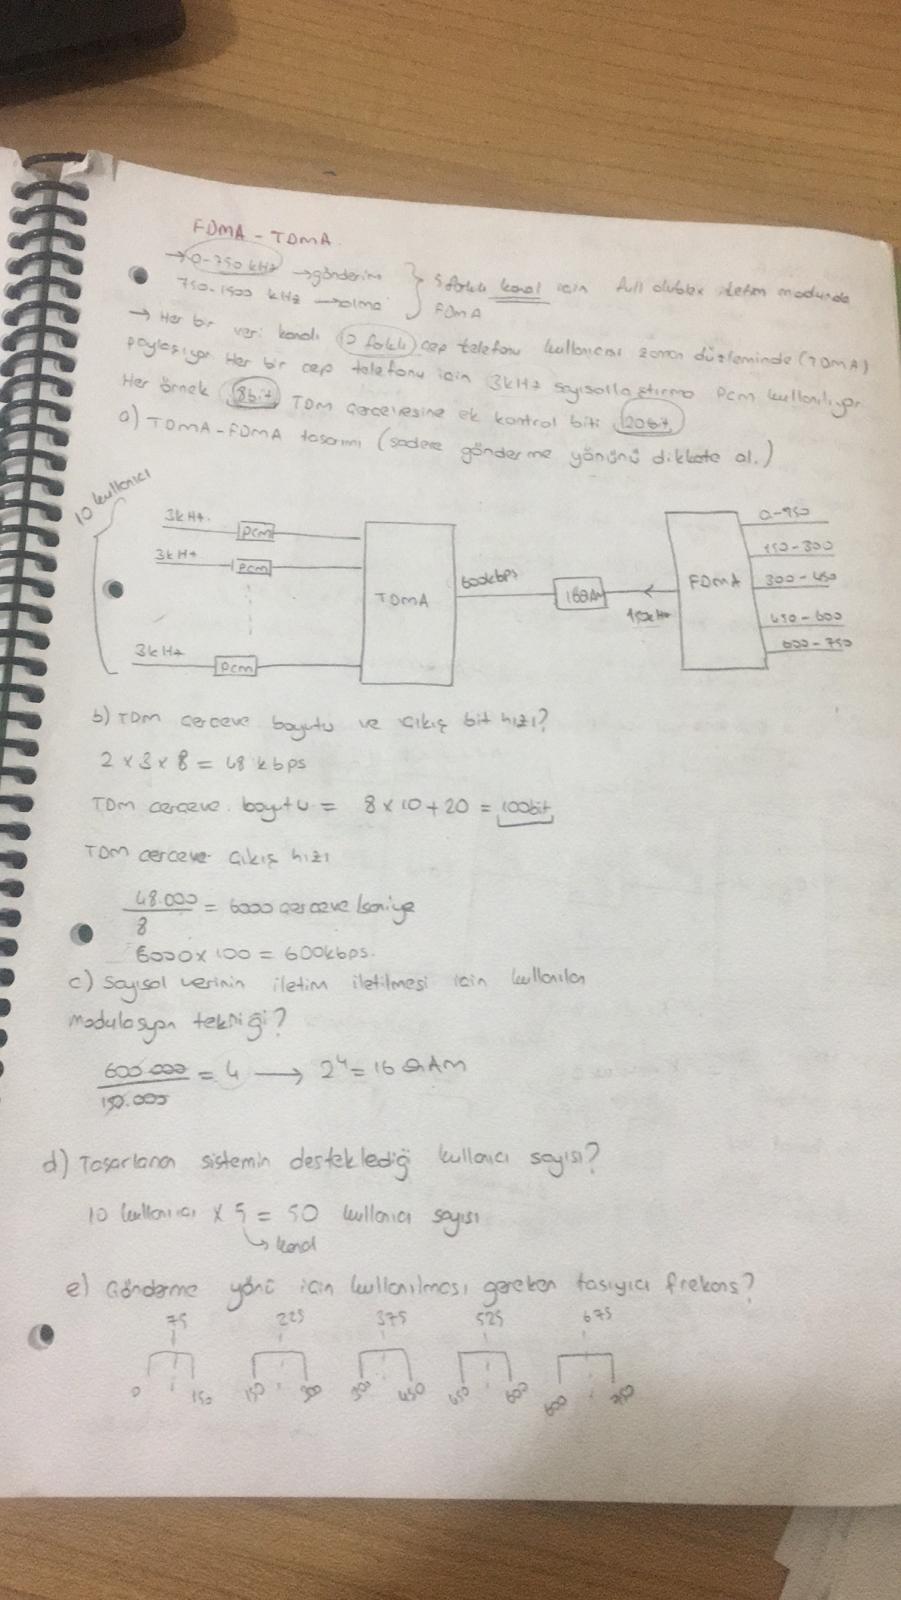 FDMA - TDMA
→ 0-750 kHz → gönderim } 5 farklı kanal için full dublex iletim modunda
750-1500 kHz → alma } FDMA
→ Her bir veri kanalı 10 farklı cep telefonu kullanıcısı zaman düzleminde (TDMA)
paylaşıyor. Her bir cep telefonu için 3kHz sayısallaştırma PCM kullanılıyor
Her örnek 8bit TDM çerçevesine ek kontrol biti 20bit
a) TDMA-FDMA tasarımı (sadece gönderme yönünü dikkate al.)
10 kullanıcı
3kHz. PCM
3kHz PCM
3kHz PCM
TDMA
600kbps
16QAM
150kHz
FDMA
0-150
150-300
300-450
450-600
600-750
b) TDM çerçeve boyutu ve çıkış bit hızı?
2 x 3 x 8 = 48 kbps
TDM çerçeve boyutu = 8 x 10 + 20 = 100bit
TDM çerçeve çıkış hızı
48.000 / 8 = 6000 çerçeve/saniye
6000 x 100 = 600kbps.
c) Sayısal verinin iletim iletilmesi için kullanılan
modulasyon tekniği?
600.000 / 150.000 = 4 → 2⁴ = 16 QAM
d) Tasarlanan sistemin desteklediği kullanıcı sayısı?
10 kullanıcı x 5 = 50 kullanıcı sayısı
↳ kanal
e) Gönderme yönü için kullanılması gereken taşıyıcı frekans?
75 225 375 525 675
0 150 150 300 300 450 450 600 600 750